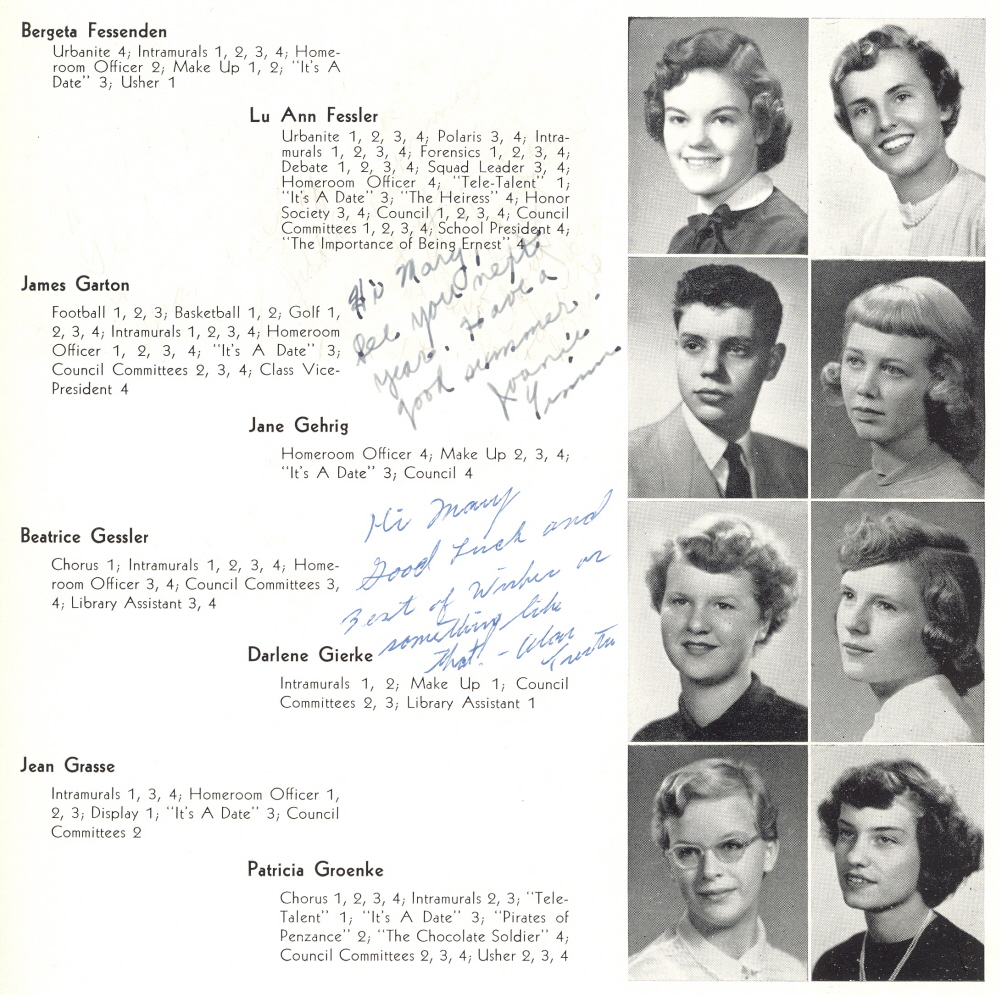 Bergeta Fessenden
Urbanite 4; Intramurals 1, 2, 3, 4; Home-
room Officer 2; Make Up 1, 2; "It's A
Date" 3; Usher 1
Lu Ann Fessler
Urbanite 1, 2, 3, 4; Polaris 3, 4; Intra-
murals 1, 2, 3, 4; Forensics 1, 2, 3, 4;
Debate 1, 2, 3, 4; Squad Leader 3, 4;
Homeroom Officer 4; "Tele-Talent" 1;
"It's A Date" 3; "The Heiress" 4; Honor
Society 3, 4; Council 1, 2, 3, 4; Council
Committees 1, 2, 3, 4; School President 4;
"The Importance of Being Ernest" 4
Hi Mary,
See you next
year. Have a
good summer.
Joanie
James Garton
Football 1, 2, 3; Basketball 1, 2; Golf 1,
2, 3, 4; Intramurals 1, 2, 3, 4; Homeroom
Officer 1, 2, 3, 4; "It's A Date" 3;
Council Committees 2, 3, 4; Class Vice-
President 4
Jane Gehrig
Homeroom Officer 4; Make Up 2, 3, 4;
"It's A Date" 3; Council 4
Hi Mary
Good Luck and
Best of Wishes or
something like
that! - Alan
Beatrice Gessler
Chorus 1; Intramurals 1, 2, 3, 4; Home-
room Officer 3, 4; Council Committees 3,
4; Library Assistant 3, 4
Darlene Gierke
Intramurals 1, 2; Make Up 1; Council
Committees 2, 3; Library Assistant 1
Jean Grasse
Intramurals 1, 3, 4; Homeroom Officer 1,
2, 3; Display 1; "It's A Date" 3; Council
Committees 2
Patricia Groenke
Chorus 1, 2, 3, 4; Intramurals 2, 3; "Tele-
Talent" 1; "It's A Date" 3; "Pirates of
Penzance" 2; "The Chocolate Soldier" 4;
Council Committees 2, 3, 4; Usher 2, 3, 4